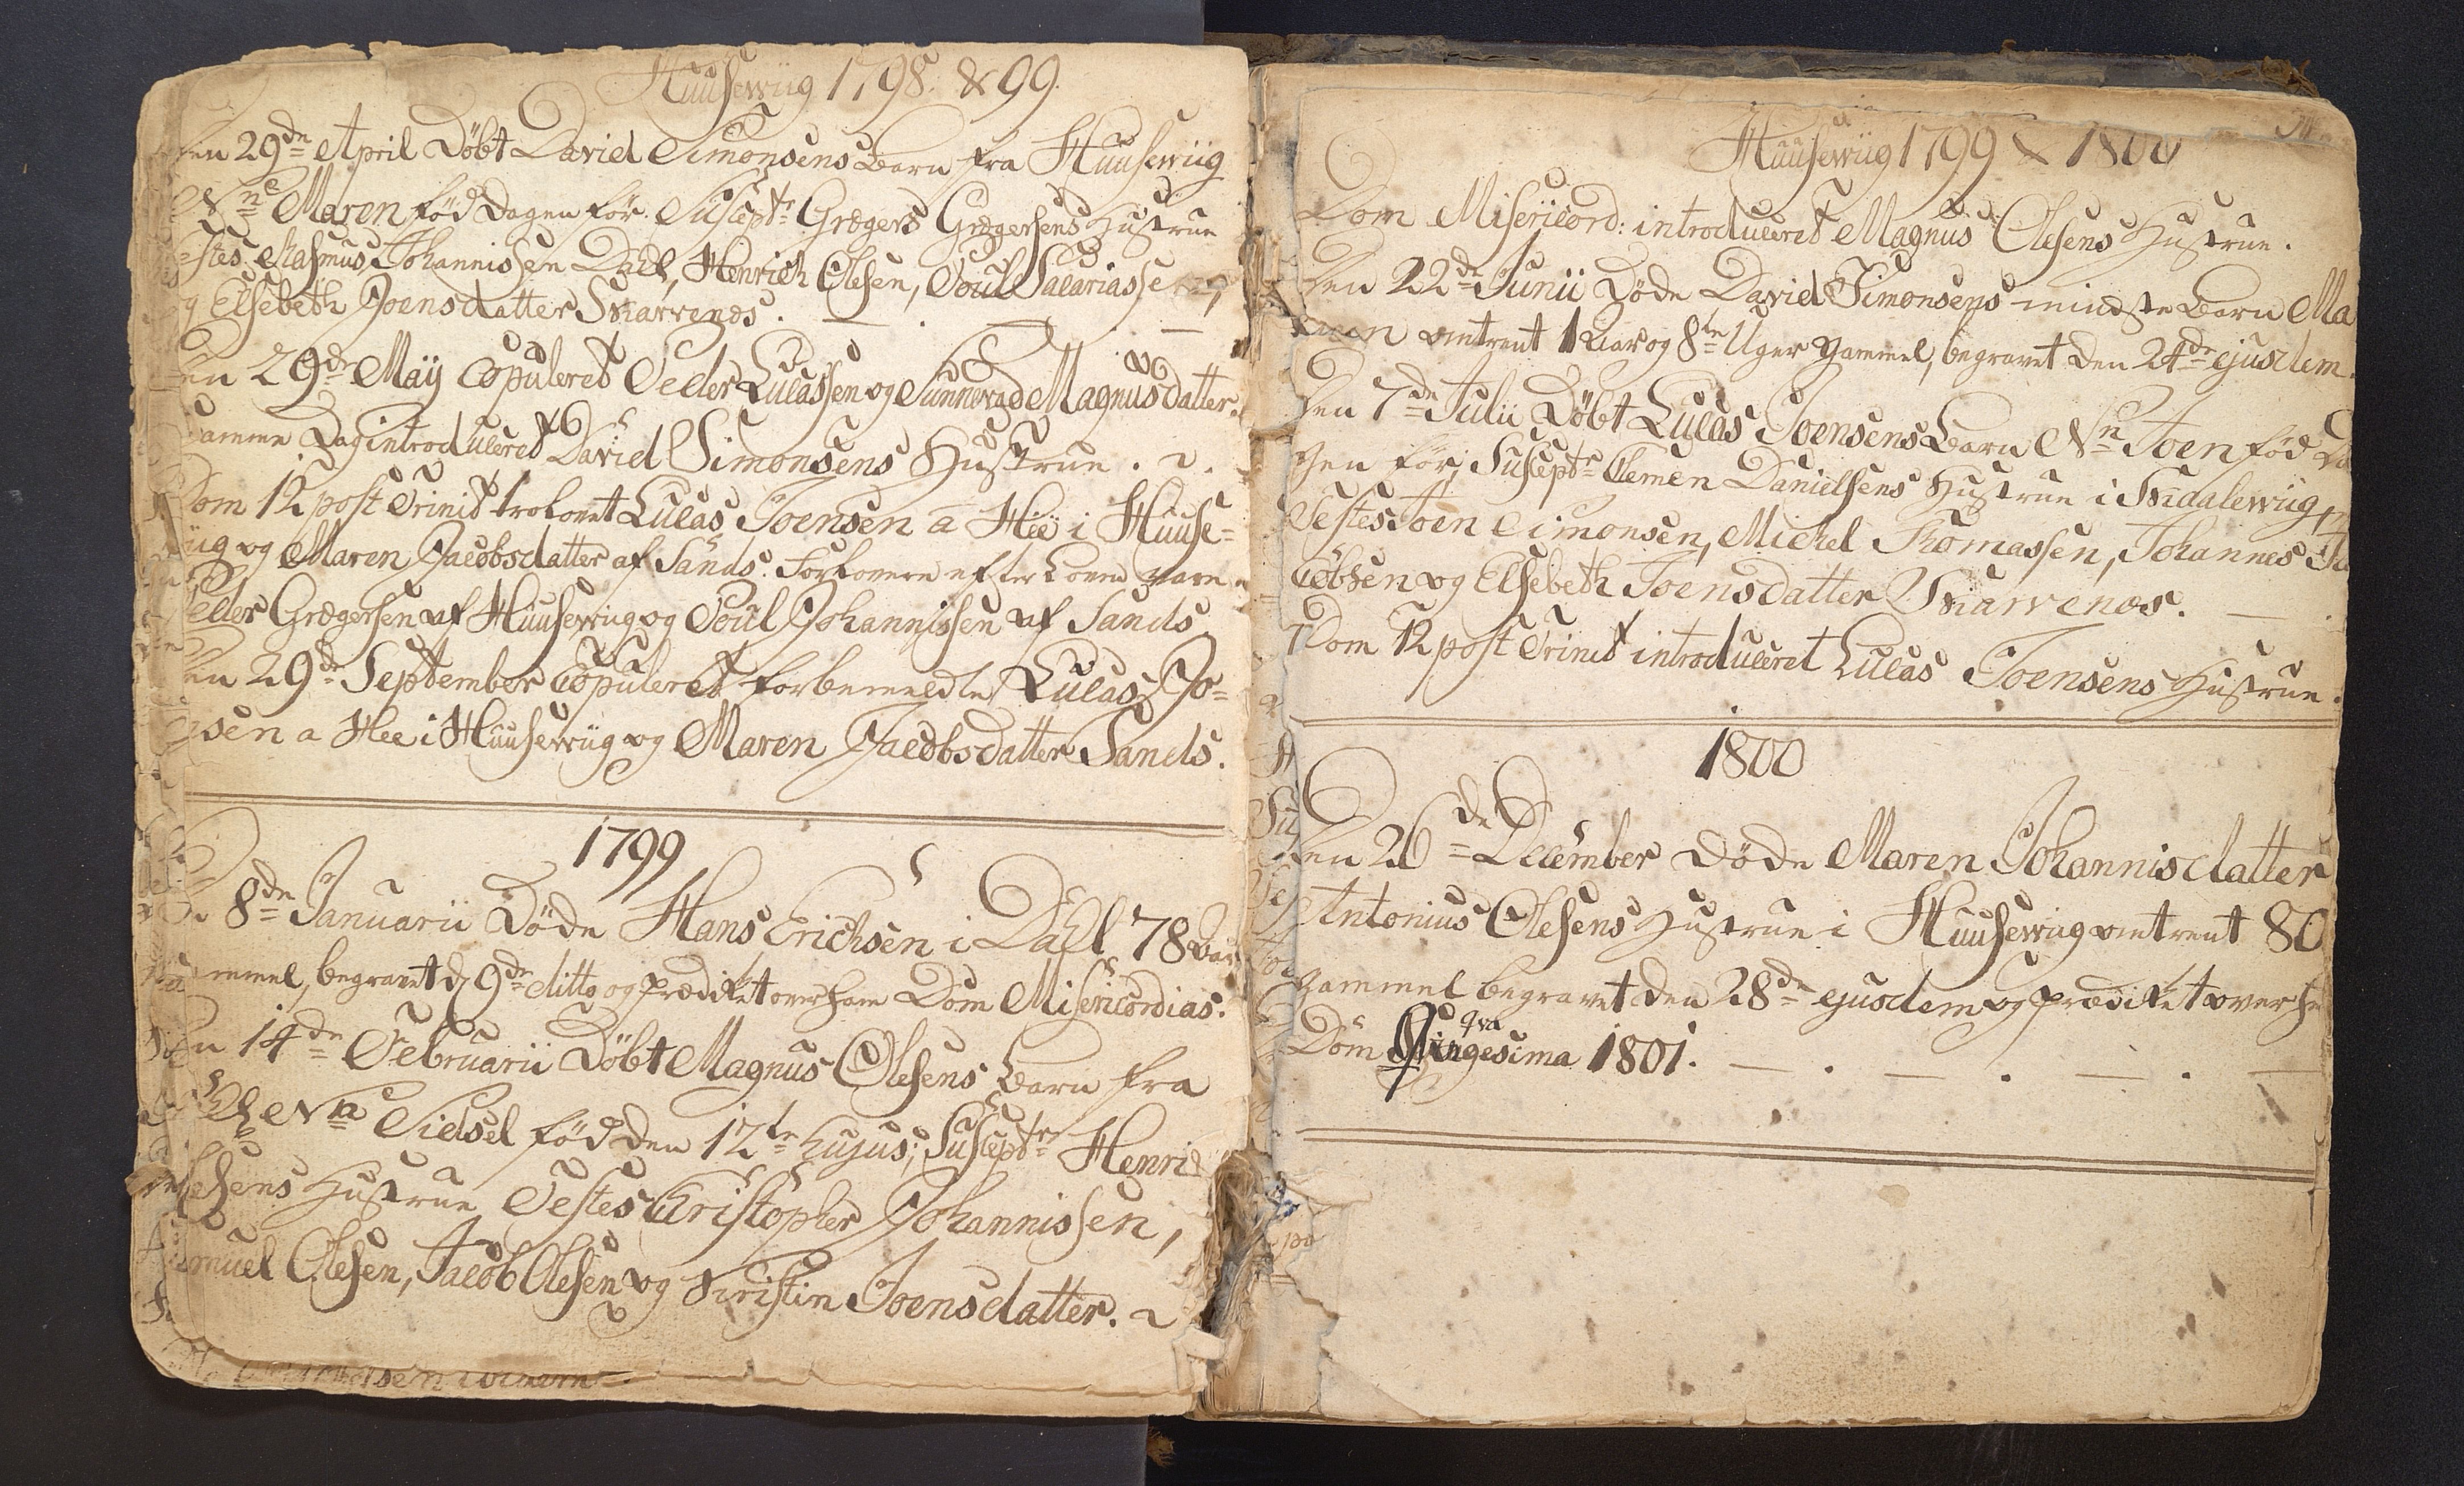 Huusewiig 1798. & 99.
den 29de April Døbt David Simonsens Barn fra Huusewiig
Nne Maren fød Dagen før. Suscept: Grægers Grægersens Hustrue
Testes: Rasmus Johannissen Dahl, Henrich Olesen, Poul Sacariassen,
og Elsebeth Joensdatter Skarvenæs.
den 29de Maij Copuleret Peder Lucassen og Sunnevad Magnusdatter.
Samme Dag introduceret David Simonsens Hustrue.
Dom 12 post Trinit trolovet Lucas Joensen a Hee i Huuse=
wiig og Maren Jacobsdatter af Sands. Forlovere efter Loven vare
Peder Grægersen af Huusewiig og Poul Johannissen af Sands
den 29de September Copuleret forbemeldte Lucas Jo=
ensen a Hee i Huusewiig og Maren Jacobsdatter Sands.
1799
8de Januarii Døde Hans Erichsen i Dahl 78 Aar
gammel, begravet d 9de ditto og prædiket over ham Dom Misericordias.
Den 14de Februarii Døbt Magnus Olesens Barn fra
Dahl Nne Sidsel fød den 12te hujus; Suscept: Henrich
Olesens Hustrue Testes Christopher Johannissen,
Samuel Olesen, Jacob Olesen og Kristin Joensdatter.
Huusewiig 1799 & 1800
Dom Misericord: introduceret Magnus Olesens Hustrue.
Den 22de Junii Døde David Simonsens mindste Barn Ma
omtrent 1 Aar og 8te Uger gammel, begravet den 24de ejusdem.
Den 7de Julii Døbt Lucas Joensens Barn Nn Joen fød Da
gen før, Suscept: Clemen Danielsens Hustrue i Skidalewiig,
Testes. Joen Simonsen, Michel Thomassen, Johannes Ja
cobsen og Elsebeth Joensdatter Skarvenæs.
Dom 12 post Trinit introduceret Lucas Joensens Hustrue.
1800
Den 26de December Døde Maren Johannisdatter
Antonius Olesens Hustrue i Huusewiig omtrent 80
gammel begravet den 28de ejusdem og prædiket over he
Dom Quinqvagesima 1801.